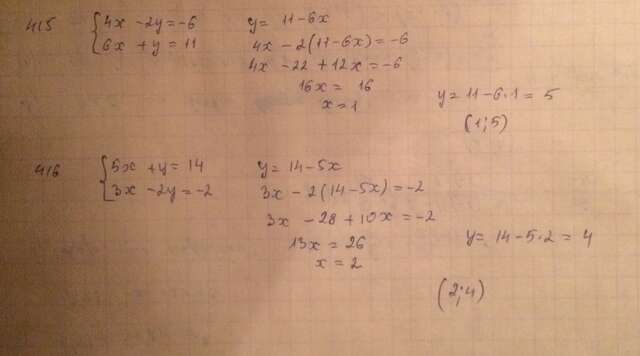 415 { 4x - 2y = -6 y = 11 - 6x
6x + y = 11 4x - 2(11 - 6x) = -6
4x - 22 + 12x = -6
16x = 16
x = 1 y = 11 - 6·1 = 5
(1; 5)
416 { 5x + y = 14 y = 14 - 5x
3x - 2y = -2 3x - 2(14 - 5x) = -2
3x - 28 + 10x = -2
13x = 26 y = 14 - 5·2 = 4
x = 2
(2; 4)